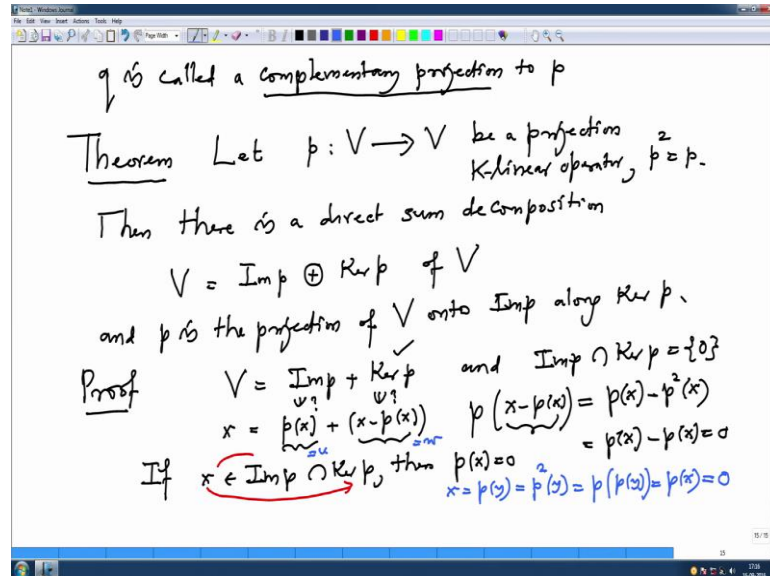 Note1 - Windows Journal
File Edit View Insert Actions Tools Help
Page Width
q is called a complementary projection to p
Theorem Let p : V → V be a projection
K-linear operator, p² = p.
Then there is a direct sum decomposition
V = Im p ⊕ Ker p of V
and p is the projection of V onto Im p along Ker p.
Proof V = Im p + Ker p ✓ and Im p ∩ Ker p = {0}
x = p(x) + (x - p(x)) p(x - p(x)) = p(x) - p²(x)
= u = w = p(x) - p(x) = 0
If x ∈ Im p ∩ Ker p, then p(x) = 0
x = p(y) = p²(y) = p(p(y)) = p(x) = 0
15/15
15
17:16